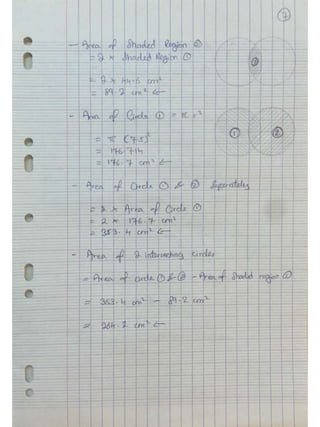 7
- Area of Shaded Region ②
= 2 × Shaded Region ①
= 2 × 44.6 cm²
= 89.2 cm² ←
②
- Area of Circle ① = π r²
= π (7.5)²
= 176.714
= 176.7 cm² ←
① ②
- Area of Circle ① & ② Seperately
= 2 × Area of Circle ①
= 2 * 176.7 cm²
= 353.4 cm² ←
- Area of 2 intersecting circles
= Area of circle ① & ② - Area of Shaded region ②
= 353.4 cm² - 89.2 cm²
= 264.2 cm² ←